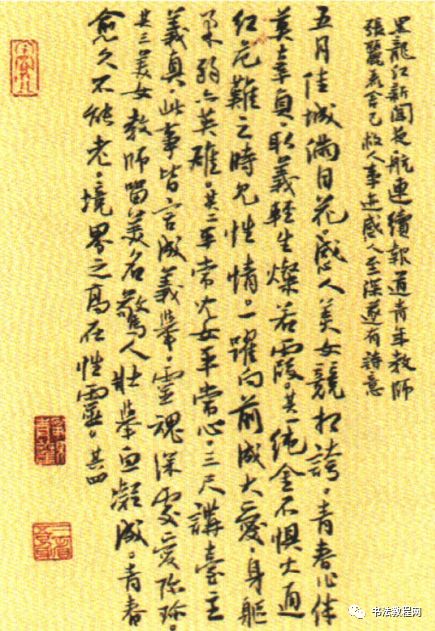 黑龍江新聞夜航連續報道青年教師
張麗莉舍己救人事迹感人至深遂有詩意
五月佳城滿目花。感人美女競相誇。青春心体
莫辜負取義輕生燦若霞。其一純金不懼火通
紅危難之時見性情。一躍向前成大愛。身軀
柔弱亦英雄。其二平常女平常心。三尺講臺主
義真。此事皆言成義舉。靈魂深處愛弥珍。
其三美女教師留美名。驚人壯舉血凝成。青春
愈久不能老。境界之高在性靈。其四
书法教程网